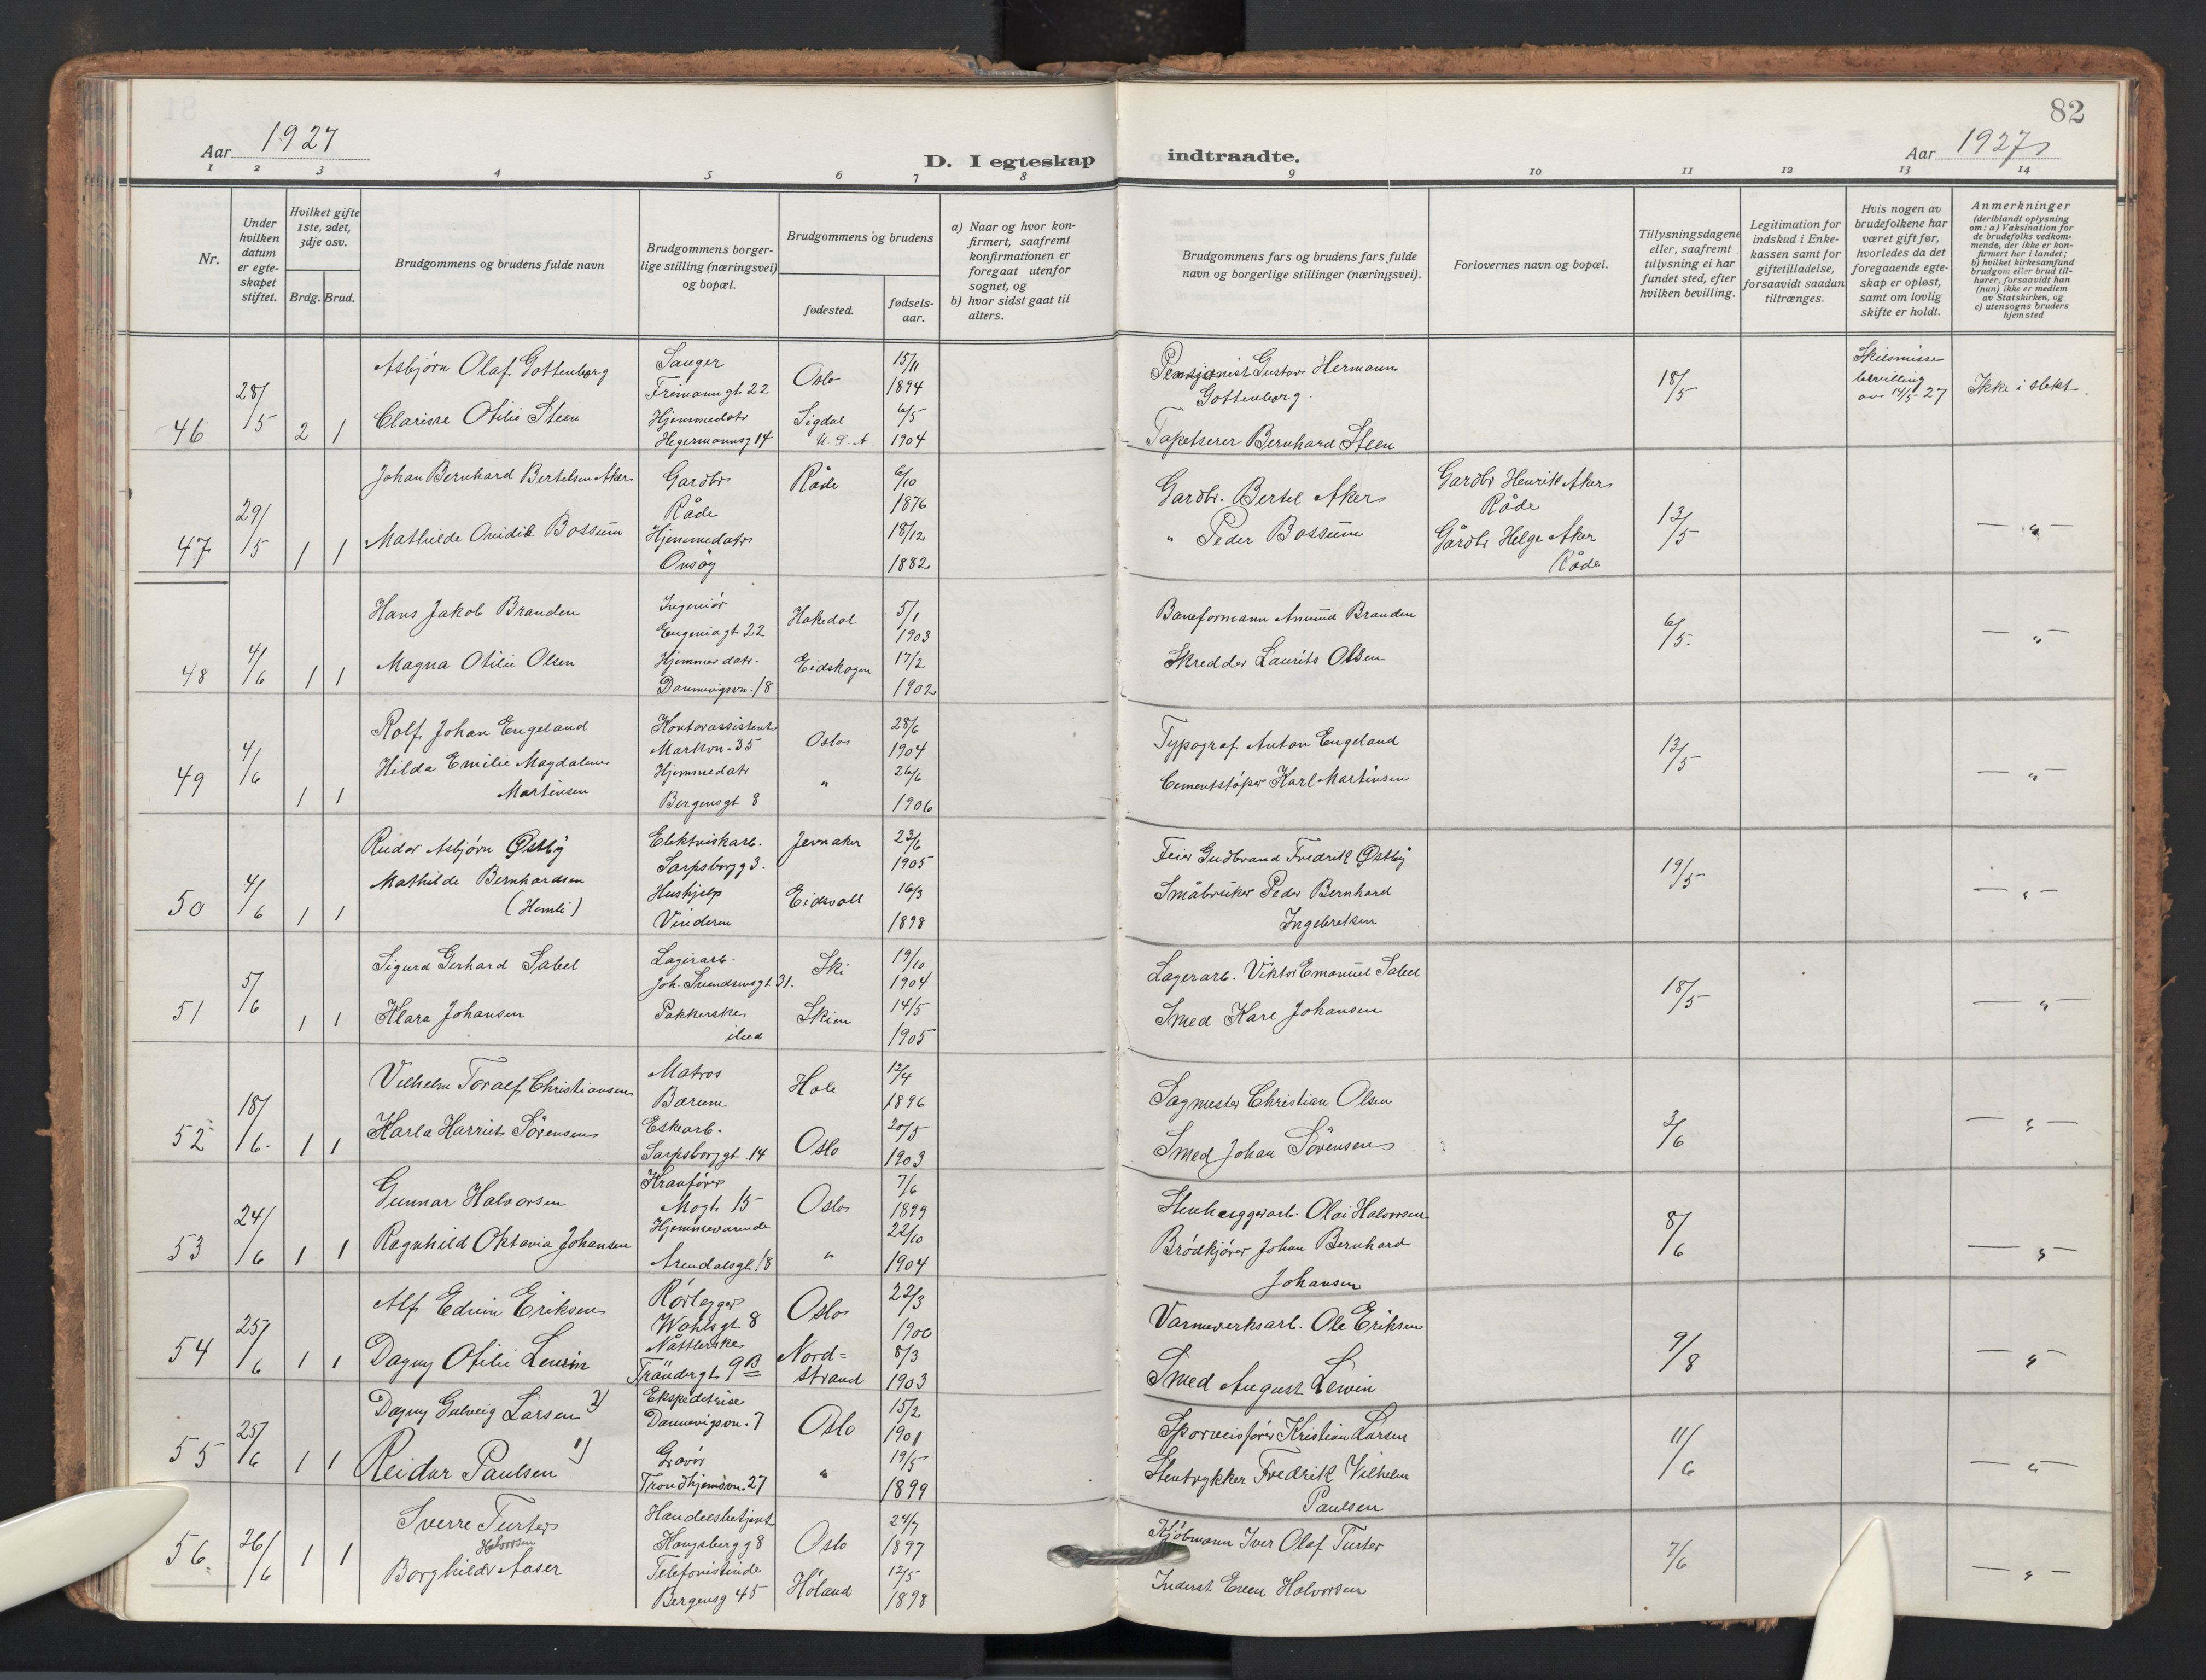 82
Aar 1927
D. I egteskap indtraadte.
Aar 1927
1 2 3 4 5 6 7 8 9 10 11 12 13 14
Nr.
Under hvilken datum er egteskapet stiftet.
Hvilket gifte 1ste, 2det, 3dje osv.
Brdg. Brud.
Brudgommens og brudens fulde navn
Brudgommens borgerlige stilling (næringsvei) og bopæl.
Brudgommens og brudens
fødested.
fødselsaar.
a) Naar og hvor konfirmert, saafremt konfirmationen er foregaat utenfor sognet, og
b) hvor sidst gaat til alters.
Brudgommens fars og brudens fars fulde navn og borgerlige stillinger (næringsvei).
Forlovernes navn og bopæl.
Tillysningsdagene eller, saafremt tillysning ei har fundet sted, efter hvilken bevilling.
Legitimation for indskud i Enkekassen samt for giftetilladelse, forsaavidt saadan tiltrænges.
Hvis nogen av brudefolkene har været gift før, hvorledes da det foregaaende egteskap er opløst, samt om lovlig skifte er holdt.
Anmerkninger (deriblandt oplysning om: a) Vaksination for de brudefolks vedkommende, der ikke er konfirmert her i landet; b) hvilket kirkesamfund brudgom eller brud tilhører, forsaavidt han (hun) ikke er medlem av Statskirken, og c) utensogns bruders hjemsted
46 28/5 2 1
Asbjørn Olaf Gottenborg Sanger Frimanngt 22 Oslo 15/11 1894 Pensjonist Gustav Hermann Gottenborg. 18/5 Skilsmisse bevilling av 14/5 27 Ikke i slekt.
Clarisse Otilie Steen Hjemmedatr Hegermannsg 14 Sigdal U.S.A 6/5 1904 Tapetserer Bernhard Steen
47 29/5 1 1
Johan Bernhard Bertelsen Aker Gardbr Råde Råde 6/10 1876 Gardbr. Bertel Aker Gardbr Henrik Aker Råde 13/5 — " —
Mathilde Ovidie Bossum Hjemmedatr Onsøy 18/12 1882 " Peder Bossum Gårdbr Helge Aker Råde
48 4/6 1 1
Hans Jakob Branden Ingeniør Eugeniagt 22 Hakedal 5/1 1903 Baneformann Amund Branden 6/5. — " —
Magna Otilie Olsen Hjemmedatr. Dannevigsvn. 18 Eidskogen 17/2 1902 Skredder Laurits Olsen
49 4/6 1 1
Rolf Johan Engeland Kontorassistent Markvn. 35 Oslo 28/6 1904 Typograf Anton Engeland 13/5 — " —
Hilda Emilie Magdalene Martinsen Hjemmedatr Bergensgt 8 " 26/6 1906 Cementstøper Karl Martinsen
50 4/6 1 1
Reidar Asbjørn Østby Elektriskarb. Sarpsborgg 3. Jevnaker 23/6 1905 Feier Gudbrand Fredrik Østby 19/5 — " —
Mathilde Bernhardsen (Hemli) Hushjelp Vinderen Eidsvoll 16/3 1898 Småbruker Peder Bernhard Ingebretsen
51 5/6 1 1
Sigurd Gerhard Sabel Lagerarb. Joh. Svendsensgt 31. Ski 19/10 1904 Lagerarb. Viktor Emanuel Sabel 18/5 — " —
Klara Johansen Pakkerske ibid Skien 14/5 1905 Smed Karl Johansen
52 18/6. 1 1
Vilhelm Toralf Christiansen Matros Bærum Hole 12/4 1896 Sagmester Christian Olsen 3/6 — " —
Karla Harriet Sørensen Eskearb. Sarpsborggt. 14 Oslo 20/5 1903 Smed Johan Sørensen
53 24/6 1 1
Gunnar Halvorsen Kranfører Mogt 15 Oslo 7/6 1899 Stenhuggerarb. Olai Halvorsen 8/6 — " —
Ragnhild Oktavia Johansen Hjemmeværende Arendalsgt. 18 " 22/10 1904 Brødkjører Johan Bernhard Johansen
54 25/6 1 1
Alf Edvin Eriksen Rørlegger Wahlsgt 8 Oslo 22/3 1900 Varmeverksarb. Ole Eriksen 9/8 — " —
Dagny Otilie Lewin Nåttlerske Trøndergt 9 B Nordstrand 8/3 1903 Smed August Lewin
55 25/6 1 1
Dagny Gulveig Larsen 2) Ekspeditrise Dannevigsvn. 7 Oslo 15/2 1901 Sporveisfører Kristian Larsen 11/6 — " —
Reidar Paulsen 1) Gravør Trondhjemsvn. 27 " 19/5 1899 Stentrykker Fredrik Vilhelm Paulsen
56. 26/6 1 1
Sverre Turter Handelsbetjent Kongsbergg 8 Oslo 24/7 1897 Kjøbmann Iver Olaf Turter 7/6 — " —
Borghild Halvorsen Aaser Telefonistinde Bergensg 45 Høland 12/5 1898 Inderst Even Halvorsen